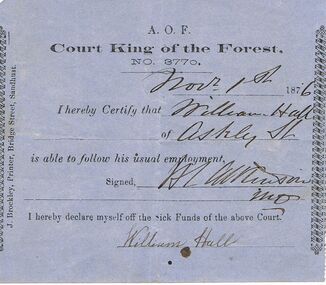 A. O. F.
Court King of the Forest,
NO. 3770.
Novr 1st 1876
I hereby Certify that William Hall
of Ashley St
is able to follow his usual employment,
Signed, Atkinson
I hereby declare myself off the Sick Funds of the above Court.
William Hall
J. Breckley, Printer, Bridge Street, Sandhurst